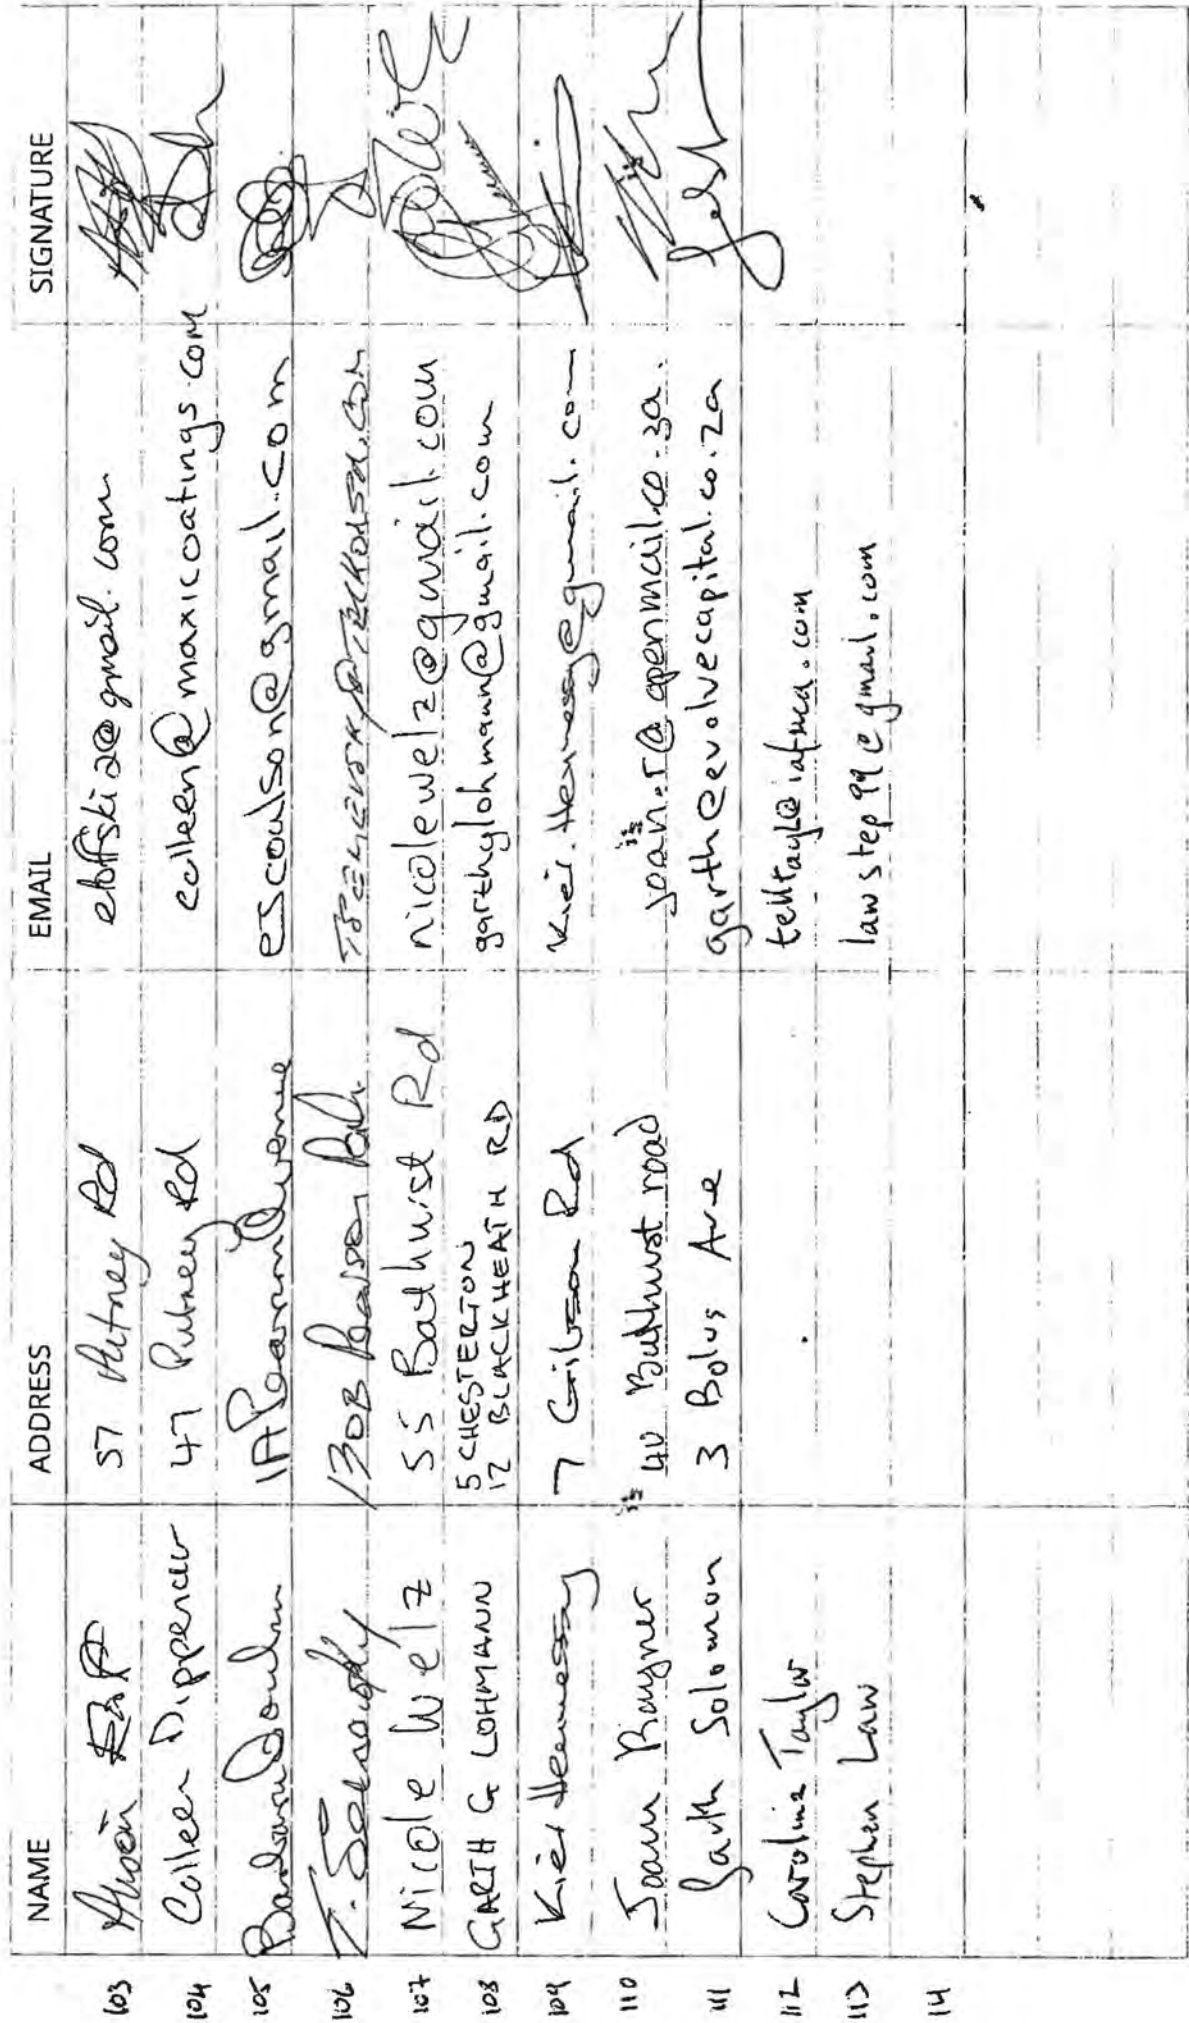 NAME ADDRESS EMAIL SIGNATURE
103 57 Putney Rd eloffski2@gmail.com
104 Colleen Dippenaar 47 Putney Rd colleen@maxicoatings.com
105 1A Pearson Avenue escoulson@gmail.com
106 130B
107 Nicole Welz 55 Bathurst Rd nicolewelz@gmail.com
108 GARTH G LOHMANN 5 CHESTERTON garthylohmann@gmail.com
12 BLACKHEATH RD
109 Kiér Hennessy 7 Gibson Rd Kier.Hennessy@gmail.com
110 Joann Rayner 40 Bathhurst road joan.r@openmail.co.za.
111 Garth Solomon 3 Bolus Ave garth@evolvecapital.co.za
112 Caroline Taylor telltayl@iafrica.com
113 Stephen Law lawstep99@gmail.com
114